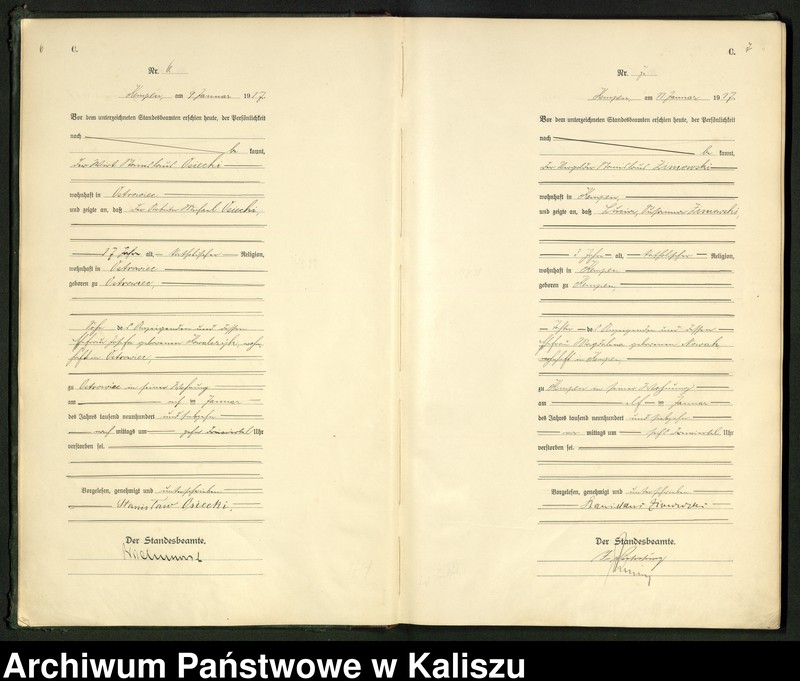 C.
Nr. 6
Kempen, am 9. Januar 1917.
Vor dem unterzeichneten Standesbeamten erschien heute, der Persönlichkeit
nach
be kannt,
der Wirt Stanislaus Osiecki
wohnhaft in Ostrowiec
und zeigte an, daß der Michael Osiecki,
17 Jahre alt, katholischer Religion,
wohnhaft in Ostrowiec
geboren zu Ostrowiec,
Sohn des Anzeigenden und dessen
Ehefrau geborenen
haft in Ostrowiec,
zu Ostrowiec in seiner Wohnung
am Januar
des Jahres tausend neunhundert und siebzehn
nach mittags um Uhr
verstorben sei.
Vorgelesen, genehmigt und unterschrieben
Stanisław Osiecki.
Der Standesbeamte.
C. 7
Nr. 7
Kempen, am 11. Januar 1917.
Vor dem unterzeichneten Standesbeamten erschien heute, der Persönlichkeit
nach
be kannt,
der Stanislaus
wohnhaft in Kempen,
und zeigte an, daß
Jahre alt, katholischer Religion,
wohnhaft in Kempen
geboren zu Kempen,
Tochter des Anzeigenden und dessen
Ehefrau Magdalena geborenen Nowak,
wohnhaft in Kempen,
zu Kempen in seiner Wohnung
am elf Januar
des Jahres tausend neunhundert und siebzehn
vor mittags um Uhr
verstorben sei.
Vorgelesen, genehmigt und unterschrieben
Der Standesbeamte.
Archiwum Państwowe w Kaliszu